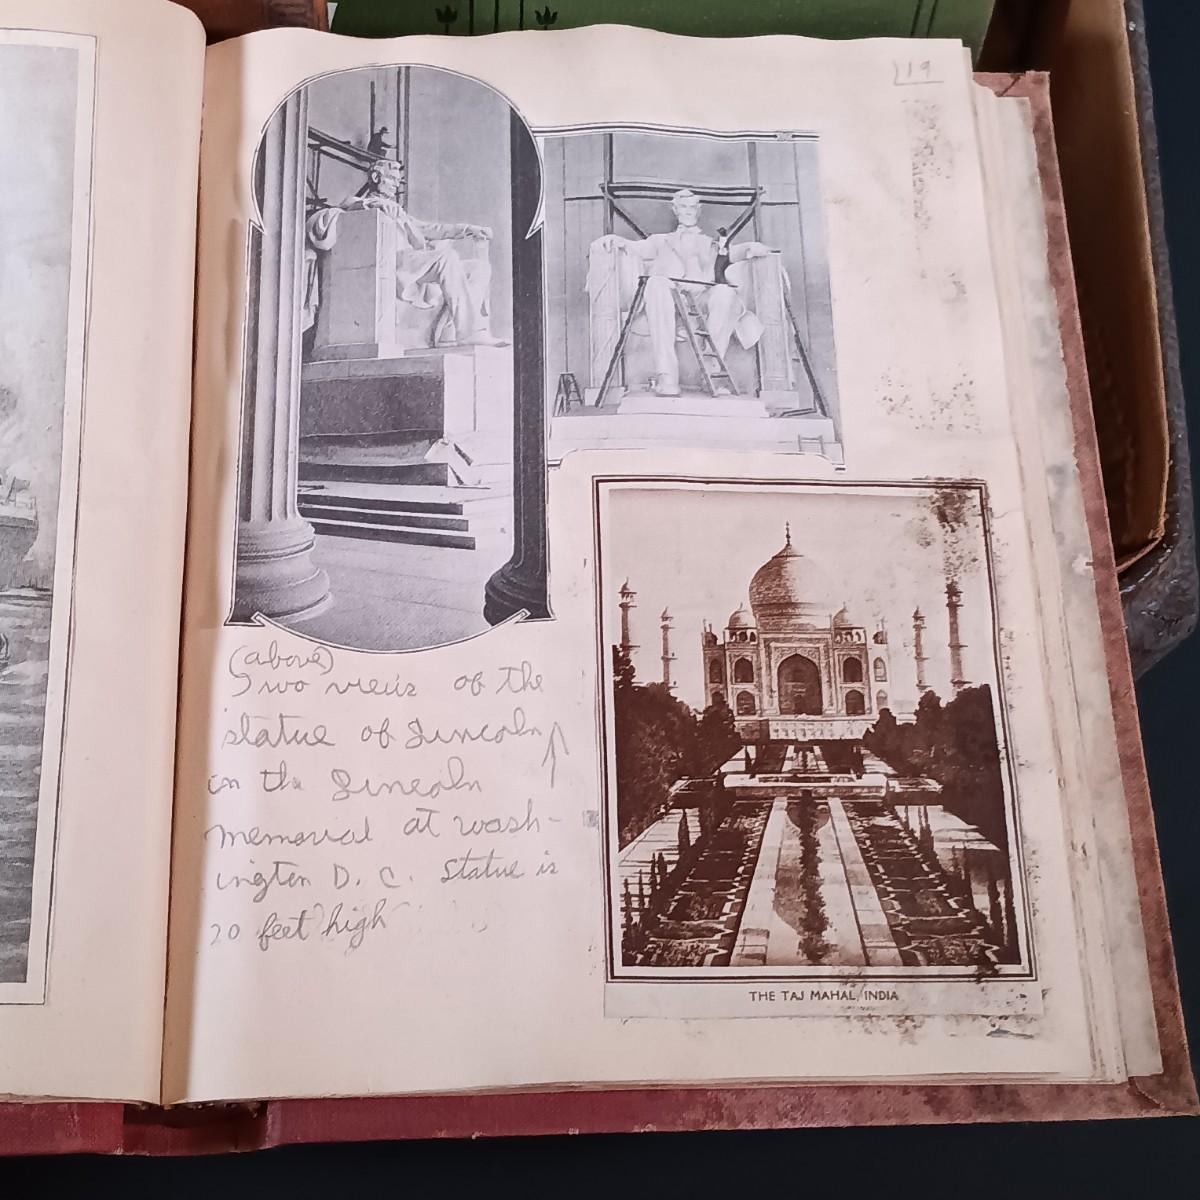 19
(above)
Two views of the
statue of Lincoln
in the Lincoln
Memorial at Wash-
ington D. C. Statue is
20 feet high
THE TAJ MAHAL, INDIA